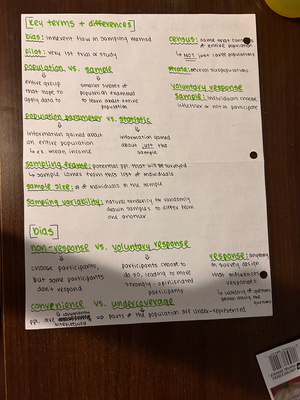 key terms + differences
bias: inherent flaw in sampling method
pilot: very 1st trial or study
population vs. sample
entire group that hope to apply data to
smaller subset of population examined to learn about entire population
census: that consists of entire population
↳ NOT just large populations
strata: several subpopulations
voluntary response sample: individuals choose whether or not to participate
population parameter vs. statistic
information gained about an entire population
↳ ex. mean income
information gained about just the sample
sampling frame: potential ppl. that will be surveyed
↳ sample comes from this list of individuals
sample size: # of individuals in the sample
sampling variability: natural tendency for randomly drawn samples to differ from one another
bias
non-response vs. voluntary response
choose participants but some participants don't respond
participants choose to do so, leading to more strongly-opinionated participants
response: anything in survey design that influences responses
↳ wording of
convenience vs. undercoverage
ppl. are
⇒ parts of the population are under-represented